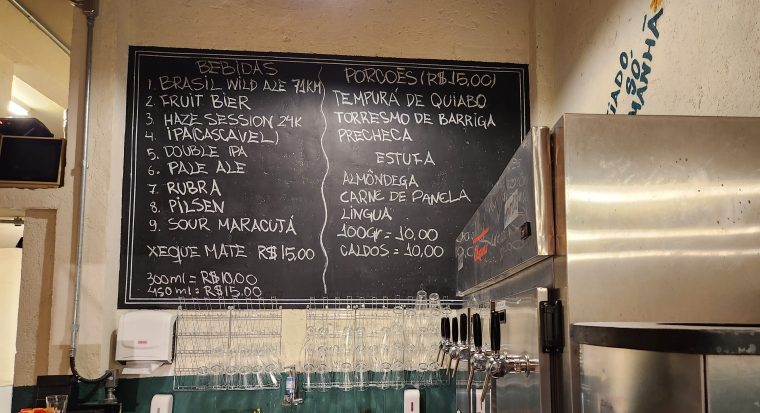 BEBIDAS
1. BRASIL WILD ALE 71KM
2. FRUIT BIER
3. HAZE SESSION 24K
4. IPA(CASCAVEL)
5. DOUBLE IPA
6. PALE ALE
7. RUBRA
8. PILSEN
9. SOUR MARACUTÁ
XEQUE MATE R$15,00
300ml = R$10,00
450ml = R$15,00
PORÇÕES (R$15,00)
TEMPURÁ DE QUIABO
TORRESMO DE BARRIGA
PRECHECA
ESTUFA
ALMÔNDEGA
CARNE DE PANELA
LÍNGUA
100Gr = 10,00
CALDOS = 10,00
FIADO,
SÓ
AMANHÃ